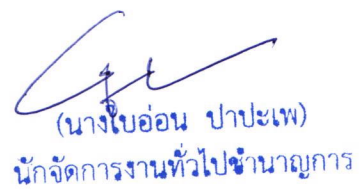 (นางใบอ่อน ปาปะเพ)
นักจัดการงานทั่วไปชำนาญการ